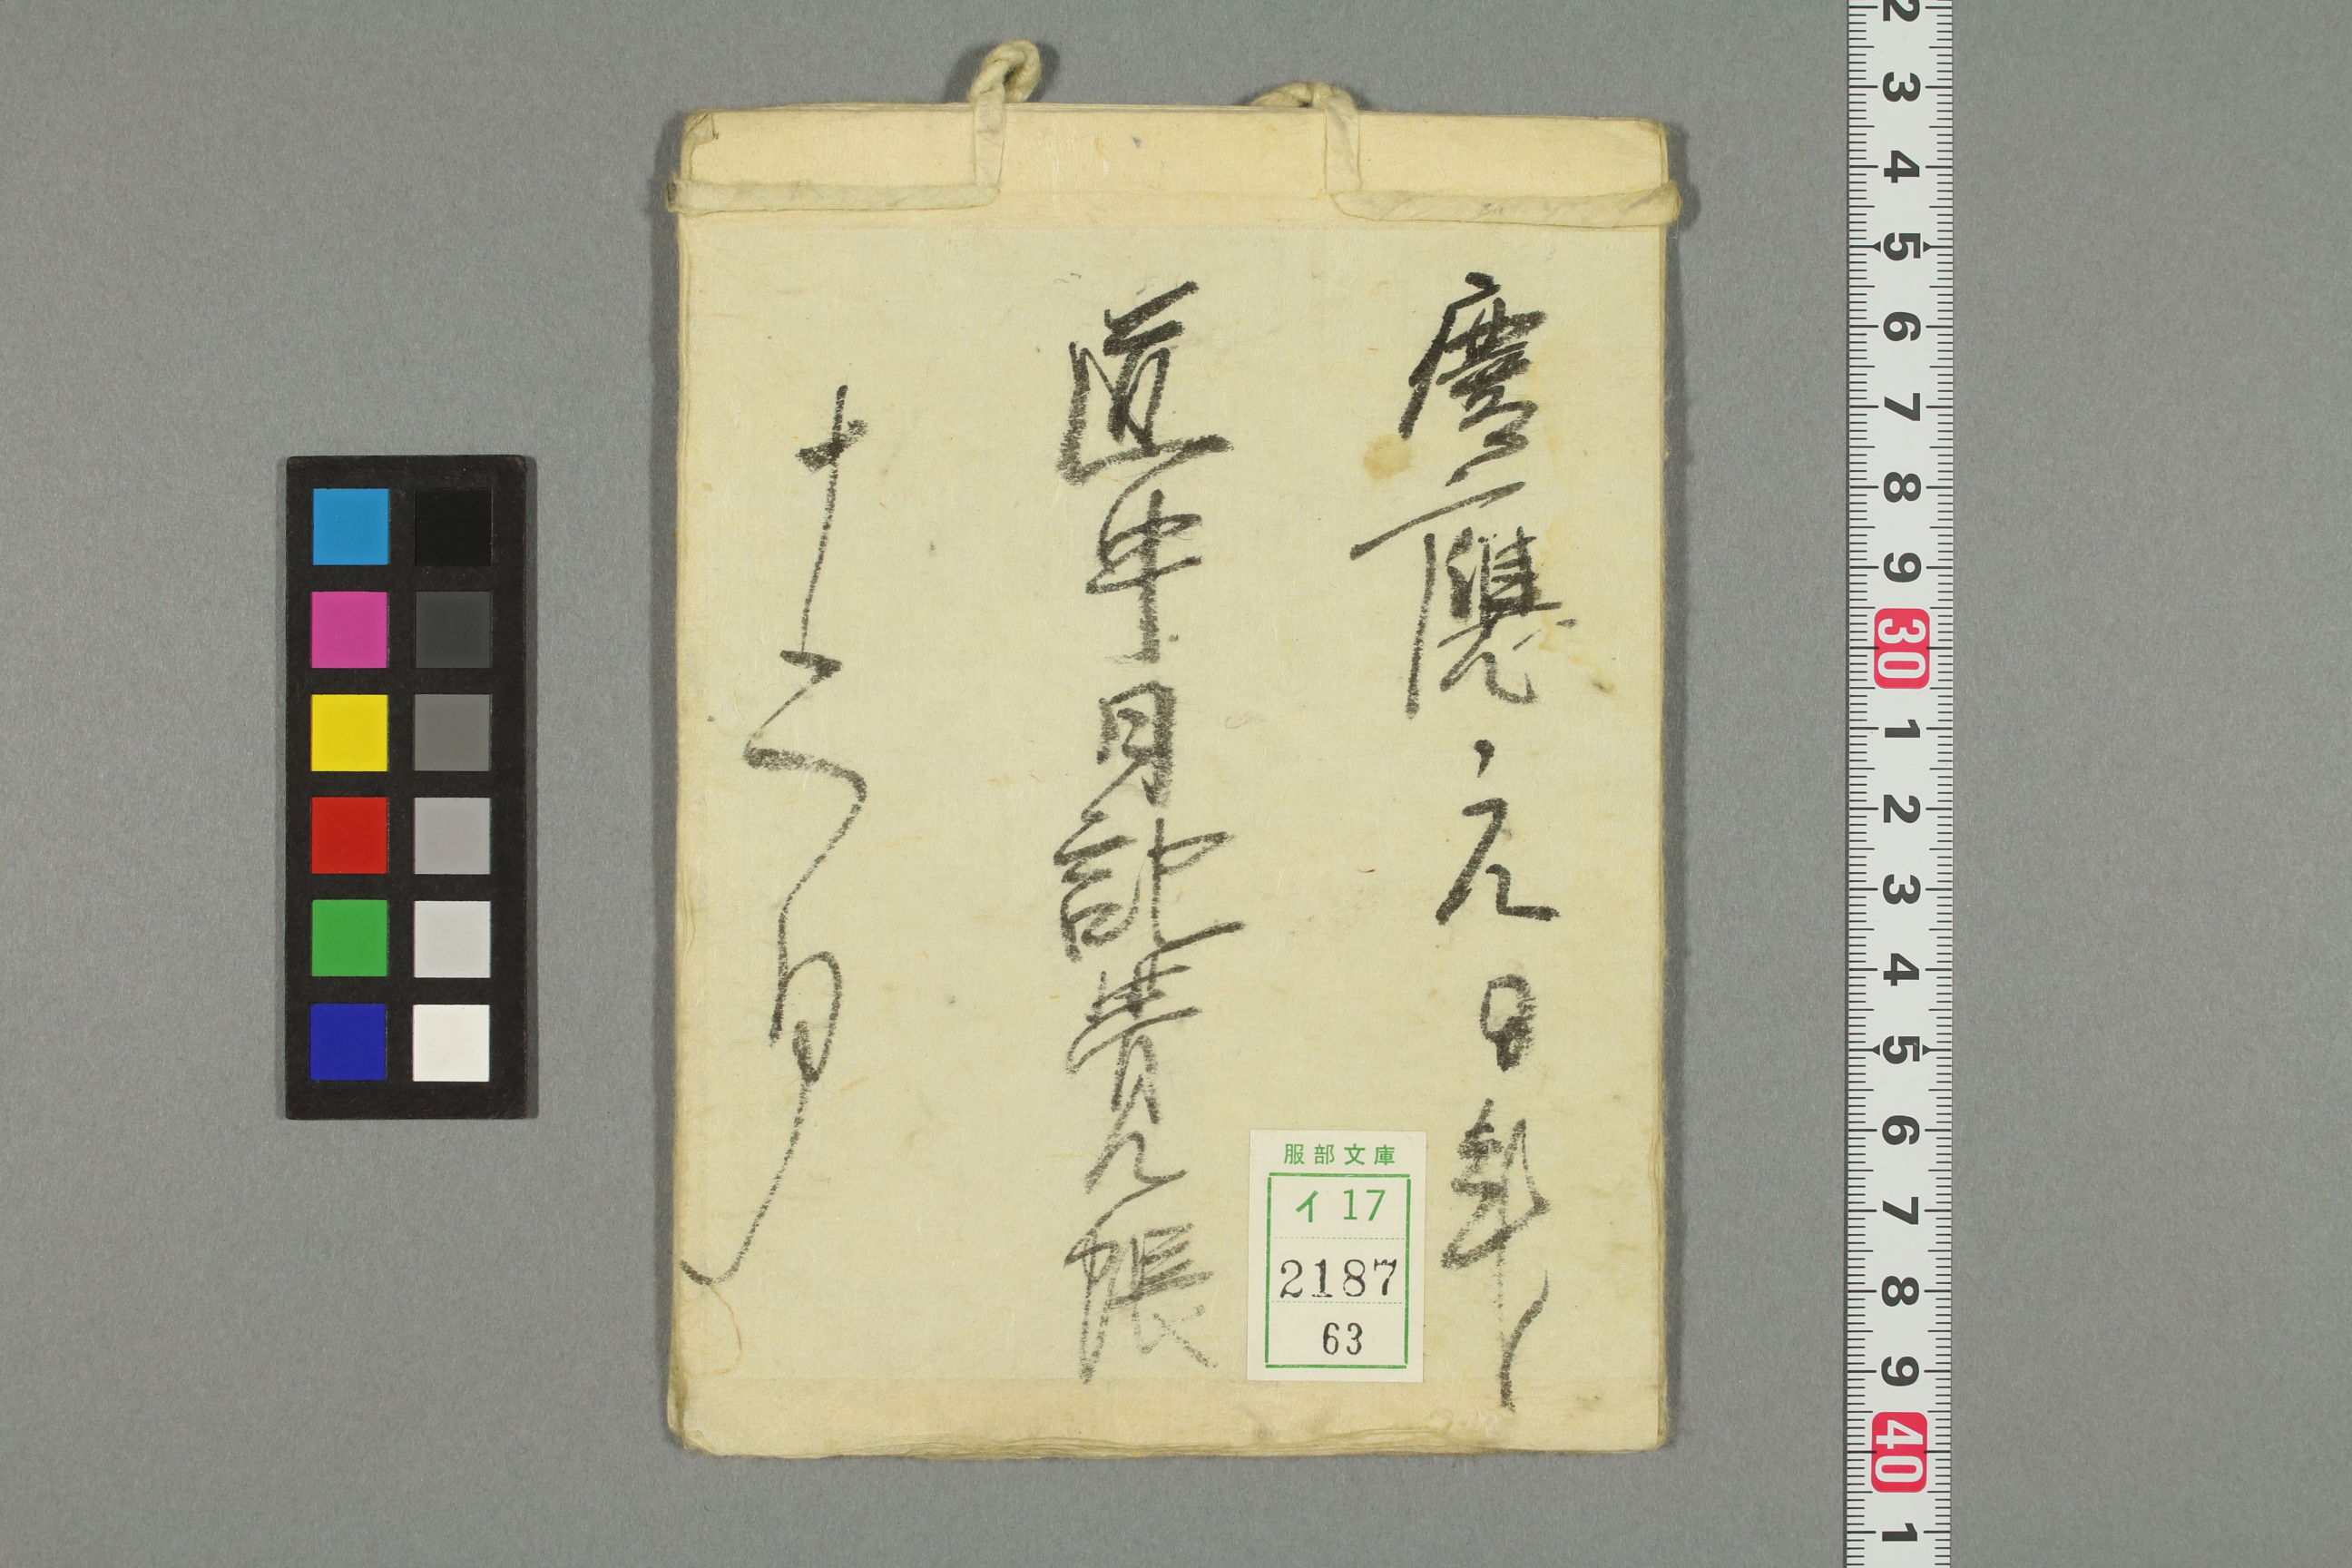 慶應元丑年
道中日記覚帳
十二月
服部文庫
イ 17
2187
63
2
3
4
5
6
7
8
9
30
1
2
3
4
5
6
7
8
9
40
1